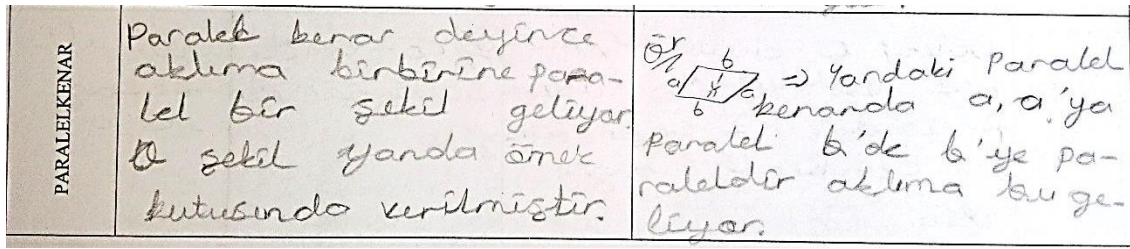 PARALELKENAR
Paralel kenar deyince
aklıma birbirine para-
lel bir şekil geliyor.
O şekil yanda örnek
kutusunda verilmiştir.
Ör/
b
a a
b
=> Yandaki Paralel
kenarda a, a'ya
Paralel b'de b'ye pa-
raleldir aklıma bu ge-
liyor.